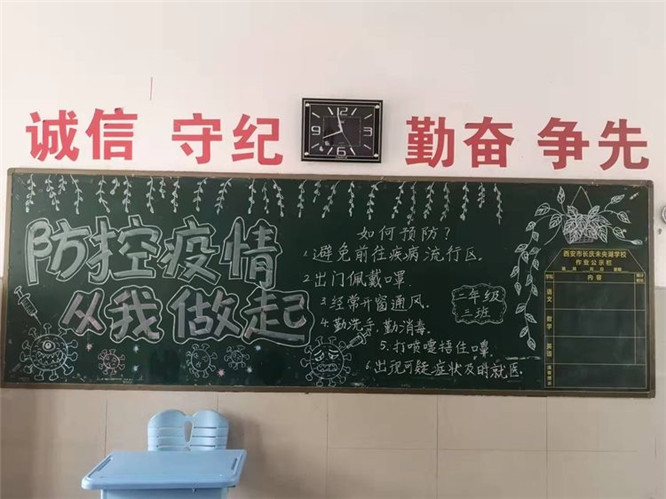 诚信 守纪 勤奋 争先
防控疫情
从我做起
如何预防?
1.避免前往疾病流行区。
2.出门佩戴口罩.
3.经常开窗通风。
4.勤洗手,勤消毒。
5.打喷嚏捂住口罩
6.出现可疑症状及时就医.
二年级
三班
西安市长庆未央湖学校
作业公示栏
内容
语文
数学
英语